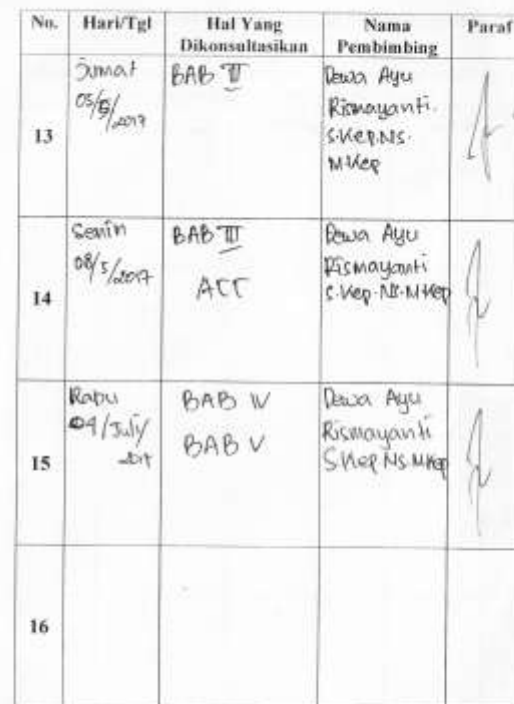 No. Hari/Tgl Hal Yang Dikonsultasikan Nama Pembimbing Paraf
13
Jumat
05/5/2017
BAB III
Dewa Ayu
Rismayanti.
S.Kep.Ns.
M.Kep
14
Senin
08/5/2017
BAB III
ACC
Dewa Ayu
Rismayanti
S.Kep.Ns.M.Kep
15
Rabu
/July/
2017
BAB IV
BAB V
Dewa Ayu
Rismayanti
S.Kep.Ns.M.Kep
16